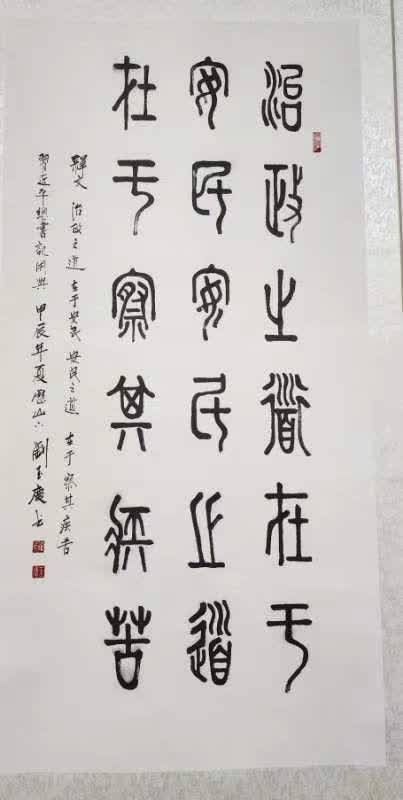 治政之道在于
安民安民之道
在于察其疾苦
释文 治政之道在于安民安民之道 在于察其疾苦
习近平总书记用典 甲辰年夏历山下刘玉庆书